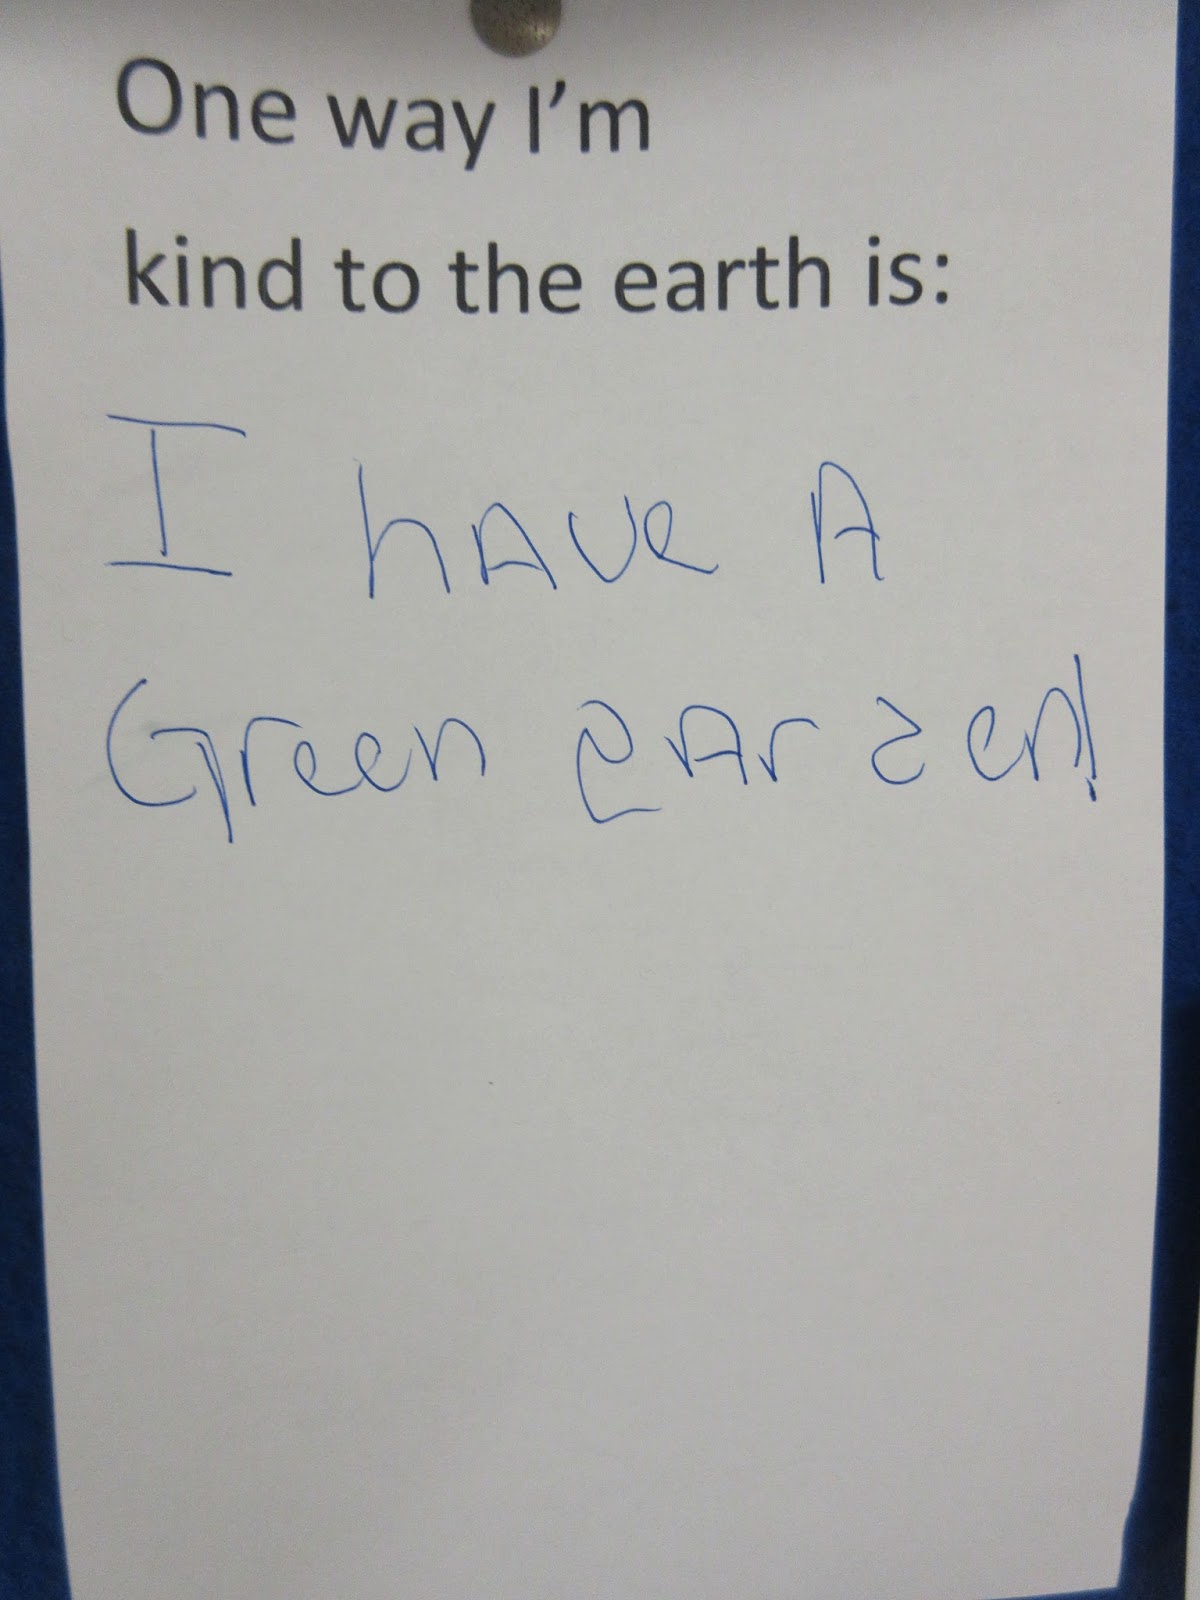 One way I'm
kind to the earth is:
I hAve A
Green gArden!